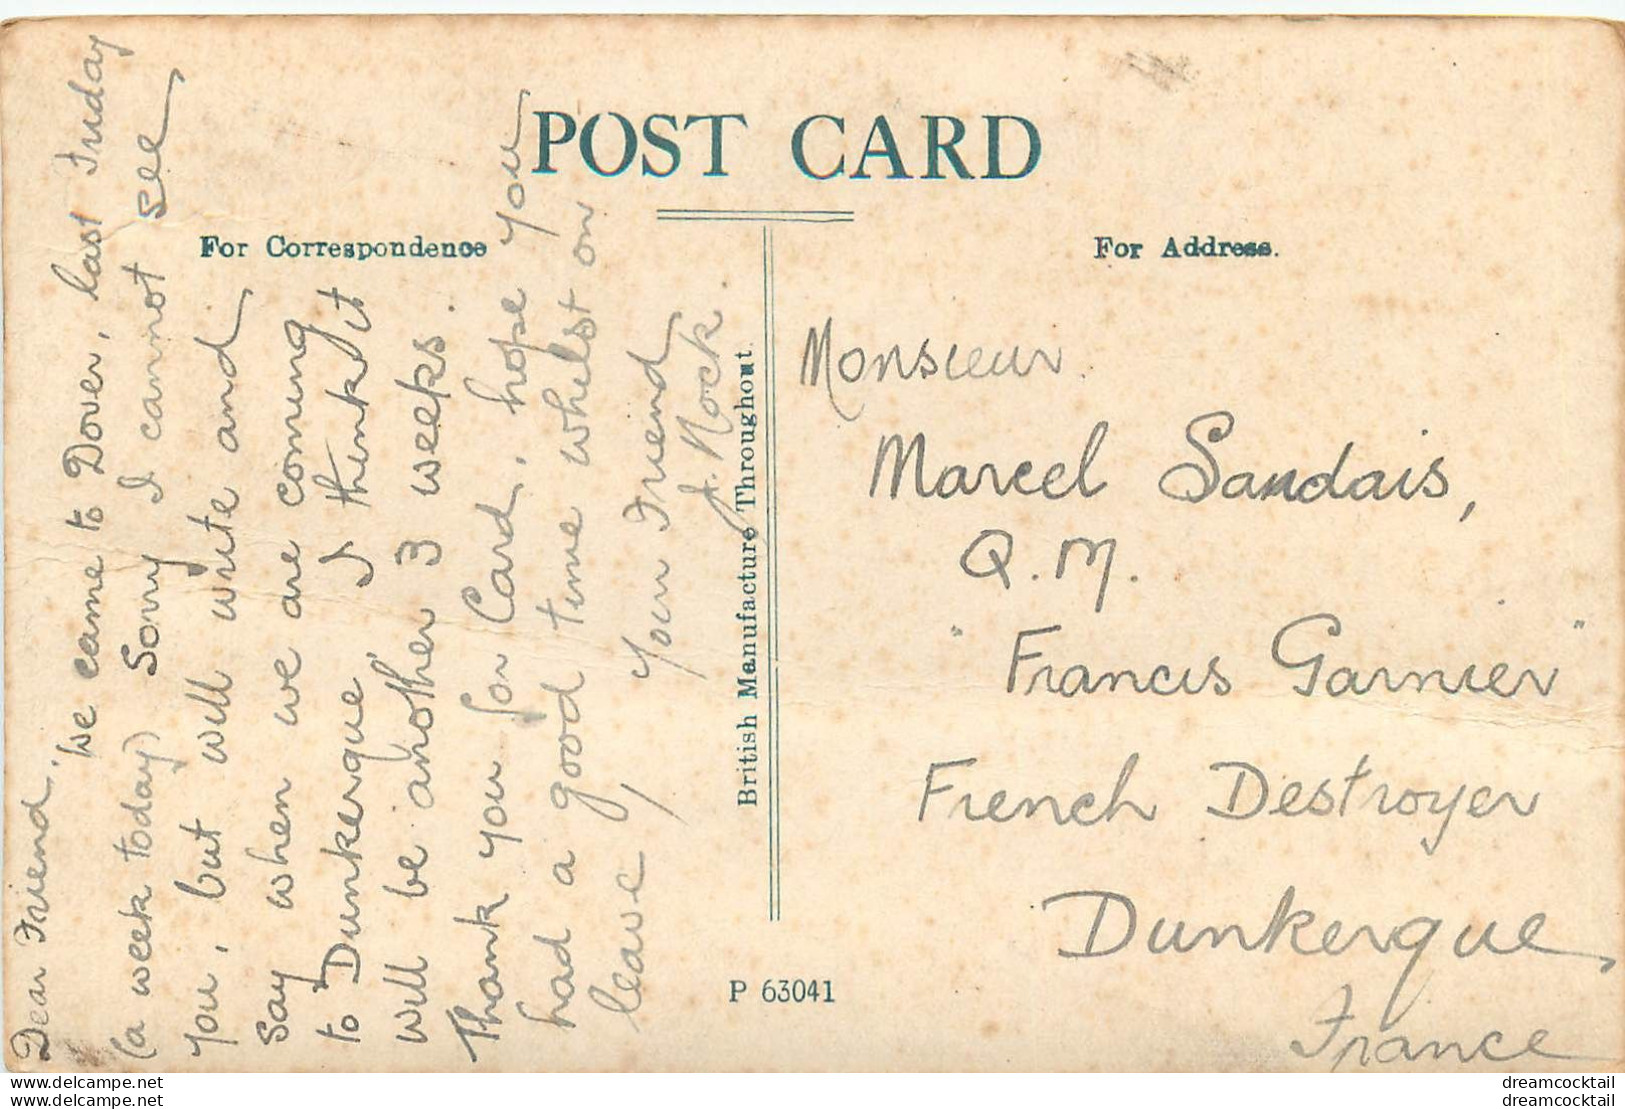 POST CARD
For Correspondence
For Address.
Dear Friend,
We came to Dover, last Friday
(a week today) Sorry I cannot see
you, but will write and
say when we are coming
to Dunkerque I think it
will be another 3 weeks.
Thank you for Card, hope you
had a good time whilst on
leave,
Your Friend
J. Mock
British Manufacture Throughout.
P 63041
Monsieur
Marcel Sandais,
Q.M.
"Francis Garnier"
French Destroyer
Dunkerque
France
dreamcocktail
dreamcocktail
dreamcocktail
dreamcocktail